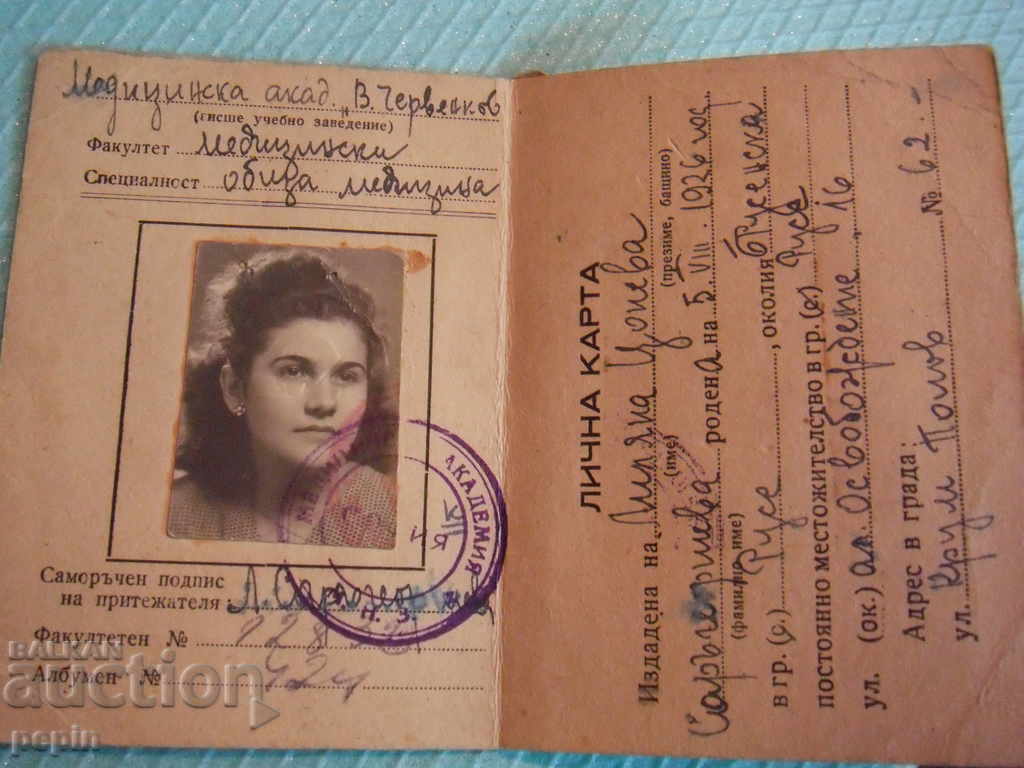 Медицинска акад. „В. Червенков
(висше учебно заведение)
Факултет медицински
Специалност обща медицина
МЕДИЦИНСКА АКАДЕМИЯ
Саморъчен подпис
на притежателя:
Факултетен № 228
Албумен № 424
ЛИЧНА КАРТА
Издадена на Лиляна Цонева
(име) (презиме, бащино)
Саръгеоргиева родена на 5 VIII. 1926 год
(фамилно име)
в гр. (с.) Русе, околия Русенска
постоянно местожителство в гр. (с) Русе
ул. (ок.) ал. Освобождение, 16
Адрес в града:
ул. Крум Попов № 62.-
БАЛКАН
auction
pepin